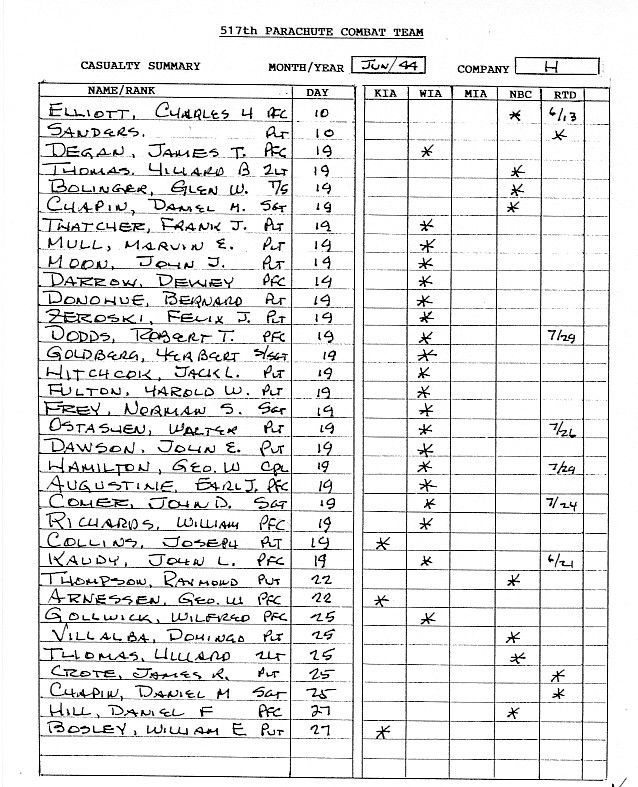 517th PARACHUTE COMBAT TEAM
CASUALTY SUMMARY MONTH/YEAR JUN/44 COMPANY H
NAME/RANK DAY KIA WIA MIA NBC RTD
ELLIOTT, CHARLES H PFC 10 * 6/13
SANDERS. PVT 10 *
DEGAN, JAMES T. PFC 19 *
THOMAS, HILLARD B 2LT 19 *
BOLINGER, GLEN W. T/5 19 *
CHAPIN, DANIEL M. SGT 19 *
THATCHER, FRANK J. PVT 19 *
MULL, MARVIN E. PVT 19 *
MOON, JOHN J. PVT 19 *
DARROW, DEWEY PFC 19 *
DONOHUE, BERNARD PVT 19 *
ZEROSKI, FELIX J. PVT 19 *
DODDS, ROBERT T. PFC 19 * 7/29
GOLDBERG, HERBERT S/SGT 19 *
HITCHCOK, JACK L. PVT 19 *
FULTON, HAROLD W. PVT 19 *
FREY, NORMAN S. SGT 19 *
OSTASHEN, WALTER PVT 19 * 7/26
DAWSON, JOHN E. PVT 19 *
HAMILTON, GEO. W CPL 19 * 7/29
AUGUSTINE, EARL J. PFC 19 *
COMER, JOHN D. SGT 19 * 7/24
RICHARDS, WILLIAM PFC 19 *
COLLINS, JOSEPH PVT 19 *
KAUDY, JOHN L. PFC 19 * 6/21
THOMPSON, RAYMOND PVT 22 *
ARNESSEN, GEO. W PFC 22 *
GOLLWICK, WILFRED PFC 25 *
VILLALBA, DOMINGO PVT 25 *
THOMAS, HILLARD 2LT 25 *
CROTE, JAMES R. PVT 25 *
CHAPIN, DANIEL M SGT 25 *
HILL, DANIEL F PFC 27 *
BOSLEY, WILLIAM E PVT 27 *